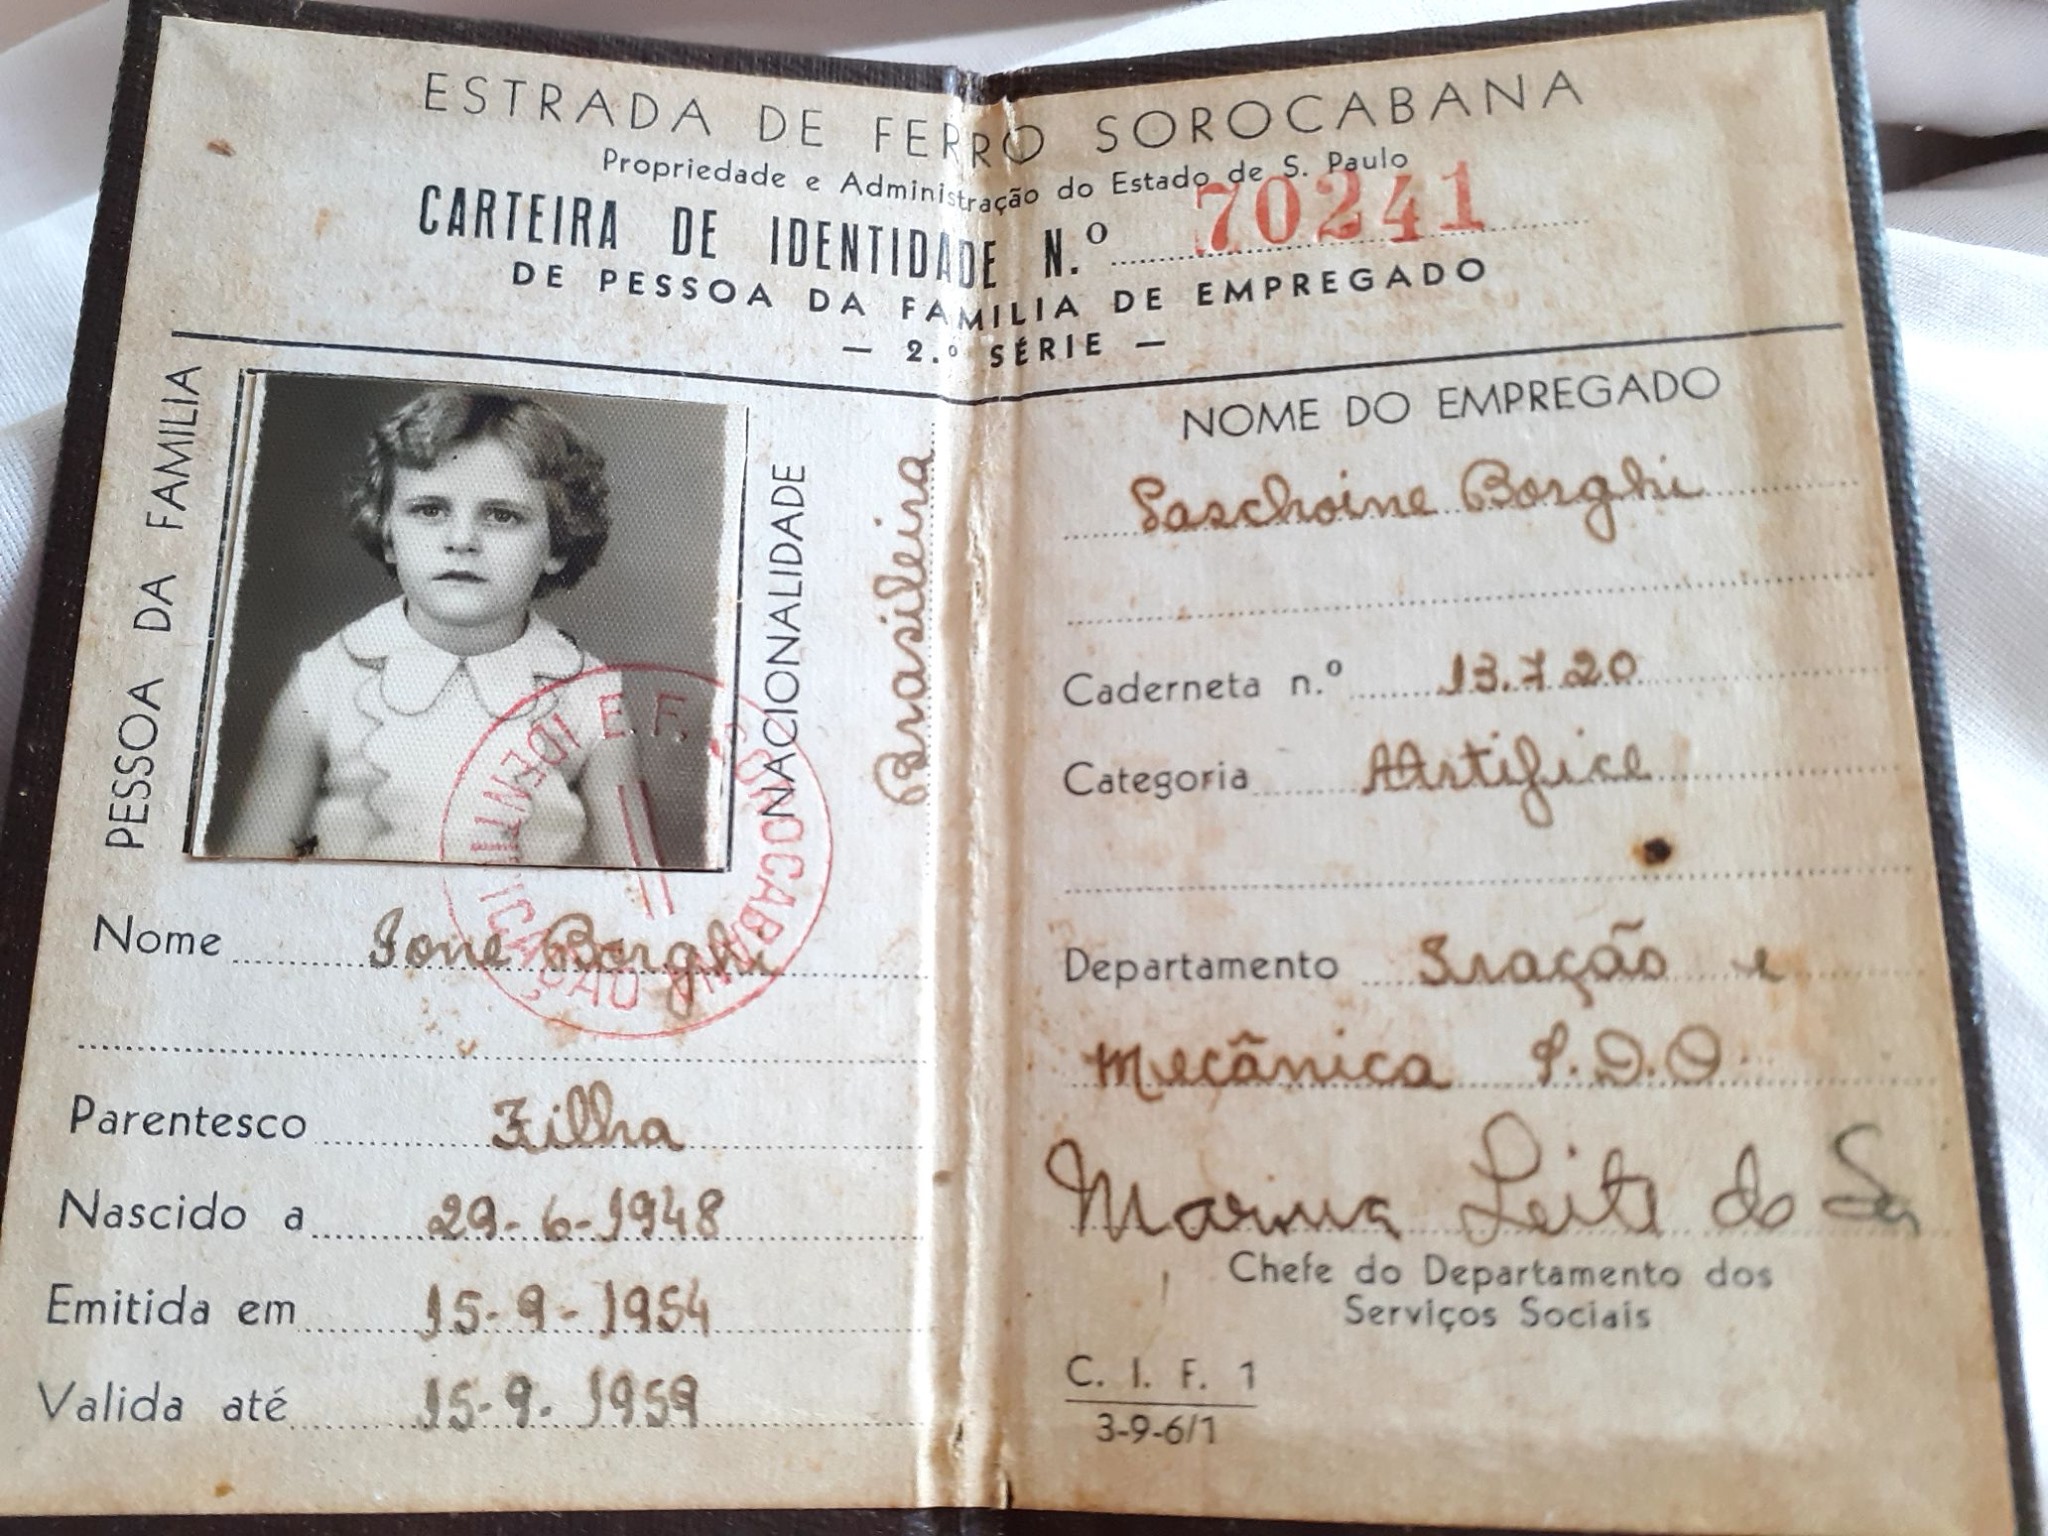 ESTRADA DE FERRO SOROCABANA
Propriedade e Administração do Estado de S. Paulo
CARTEIRA DE IDENTIDADE N.º 70241
DE PESSOA DA FAMILIA DE EMPREGADO
— 2.º SÉRIE —
PESSOA DA FAMILIA
NACIONALIDADE
Brasileira
E. F. SOROCABANA
IDENTIFICAÇÃO
Nome Ione Borghi
Parentesco Filha
Nascido a 29-6-1948
Emitida em 15-9-1954
Valida até 15-9-1959
NOME DO EMPREGADO
Paschoine Borghi
Caderneta n.º 13.720
Categoria Artifice
Departamento Tração e
Mecânica P.D.O
Marina Leite do
Chefe do Departamento dos
Serviços Sociais
C. I. F. 1
3-9-6/1